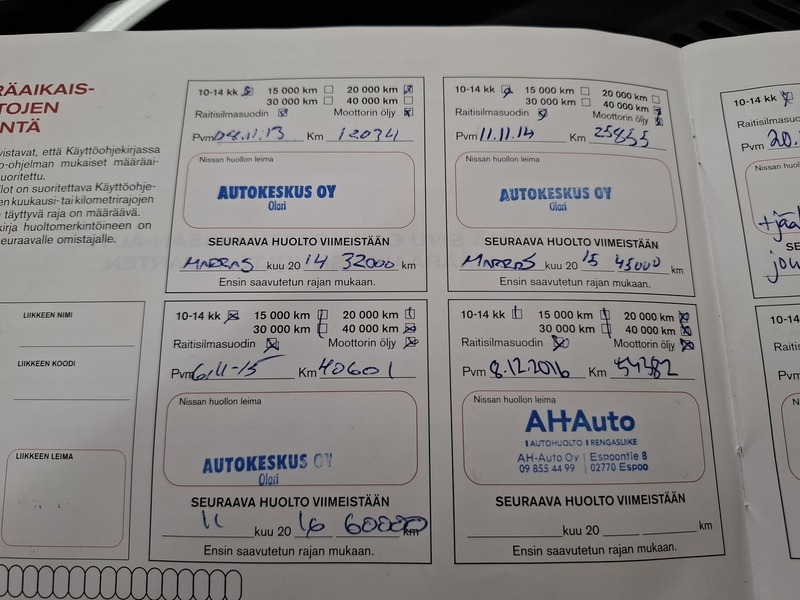 RÄAIKAIS-
TOJEN
NTÄ
vistavat, että Käyttöohjekirjassa
o-ohjelman mukaiset määräai-
suoritettu.
llot on suoritettava Käyttöohje-
en kuukausi- tai kilometrirajojen
täyttyvä raja on määräävä.
kirja huoltomerkintöineen on
seuraavalle omistajalle.
LIIKKEEN NIMI
LIIKKEEN KOODI
LIIKKEEN LEIMA
10-14 kk 15 000 km 20 000 km
30 000 km 40 000 km
Raitisilmasuodin Moottorin öljy
Pvm 08.11.13 Km 12034
Nissan huollon leima
AUTOKESKUS OY
Olari
SEURAAVA HUOLTO VIIMEISTÄÄN
MARRAS kuu 20 14 32000 km
Ensin saavutetun rajan mukaan.
10-14 kk 15 000 km 20 000 km
30 000 km 40 000 km
Raitisilmasuodin Moottorin öljy
Pvm 11.11.14 Km 25855
Nissan huollon leima
AUTOKESKUS OY
Olari
SEURAAVA HUOLTO VIIMEISTÄÄN
MARRAS kuu 20 15 45000 km
Ensin saavutetun rajan mukaan.
10-14 kk 15 000 km 20 000 km
30 000 km 40 000 km
Raitisilmasuodin Moottorin öljy
Pvm 6.11-15 Km 40601
Nissan huollon leima
AUTOKESKUS OY
Olari
SEURAAVA HUOLTO VIIMEISTÄÄN
11 kuu 20 16 60000 km
Ensin saavutetun rajan mukaan.
10-14 kk 15 000 km 20 000 km
30 000 km 40 000 km
Raitisilmasuodin Moottorin öljy
Pvm 8.12.2016 Km 54382
Nissan huollon leima
AH-Auto
AUTOHUOLTO RENGASLIIKE
AH-Auto Oy Espoontie 8
09 855 44 99 02770 Espoo
SEURAAVA HUOLTO VIIMEISTÄÄN
kuu 20 km
Ensin saavutetun rajan mukaan.
10-14 k
Raitisilmasu
Pvm 20.
Nissan
SE
10-14
Raitisi
Pvm
Niss